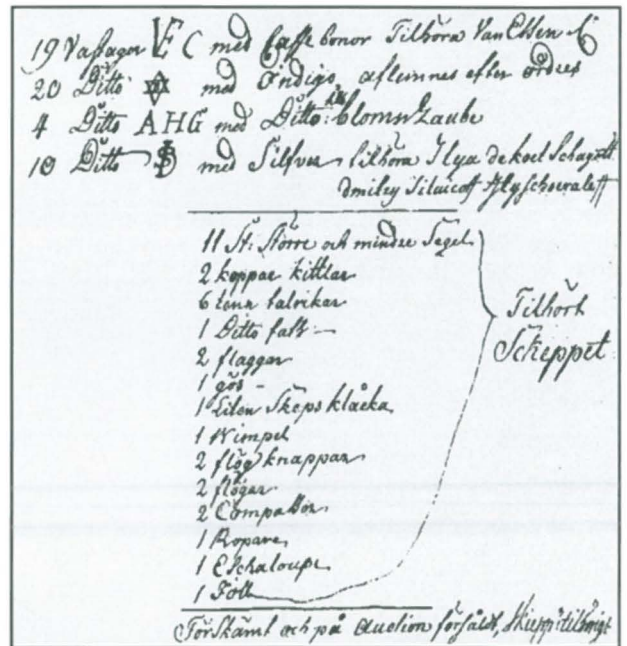 19 Vassagor VE C med Caffe bonor Tilhöra Van Essen
20 Ditto ✡ med Indigo, aflemnes efter ordres
4 Ditto AHG med Ditto blomn
10 Ditto med Silfver tilhöra Ilya de
dmitry
11 St: Större och mindre Segel
2 koppar kittlar
6 tenn talrikar
1 Ditto fatt
2 flaggor
1 gös
1 Liten Skeps klåcka
1 Wimpel
2 flög knappar
2 flögar
2 Compasser
1 Ropare
1 Eschaloupe
1
Tilhört
Skeppet
Förskämt och på Auction försåldt,